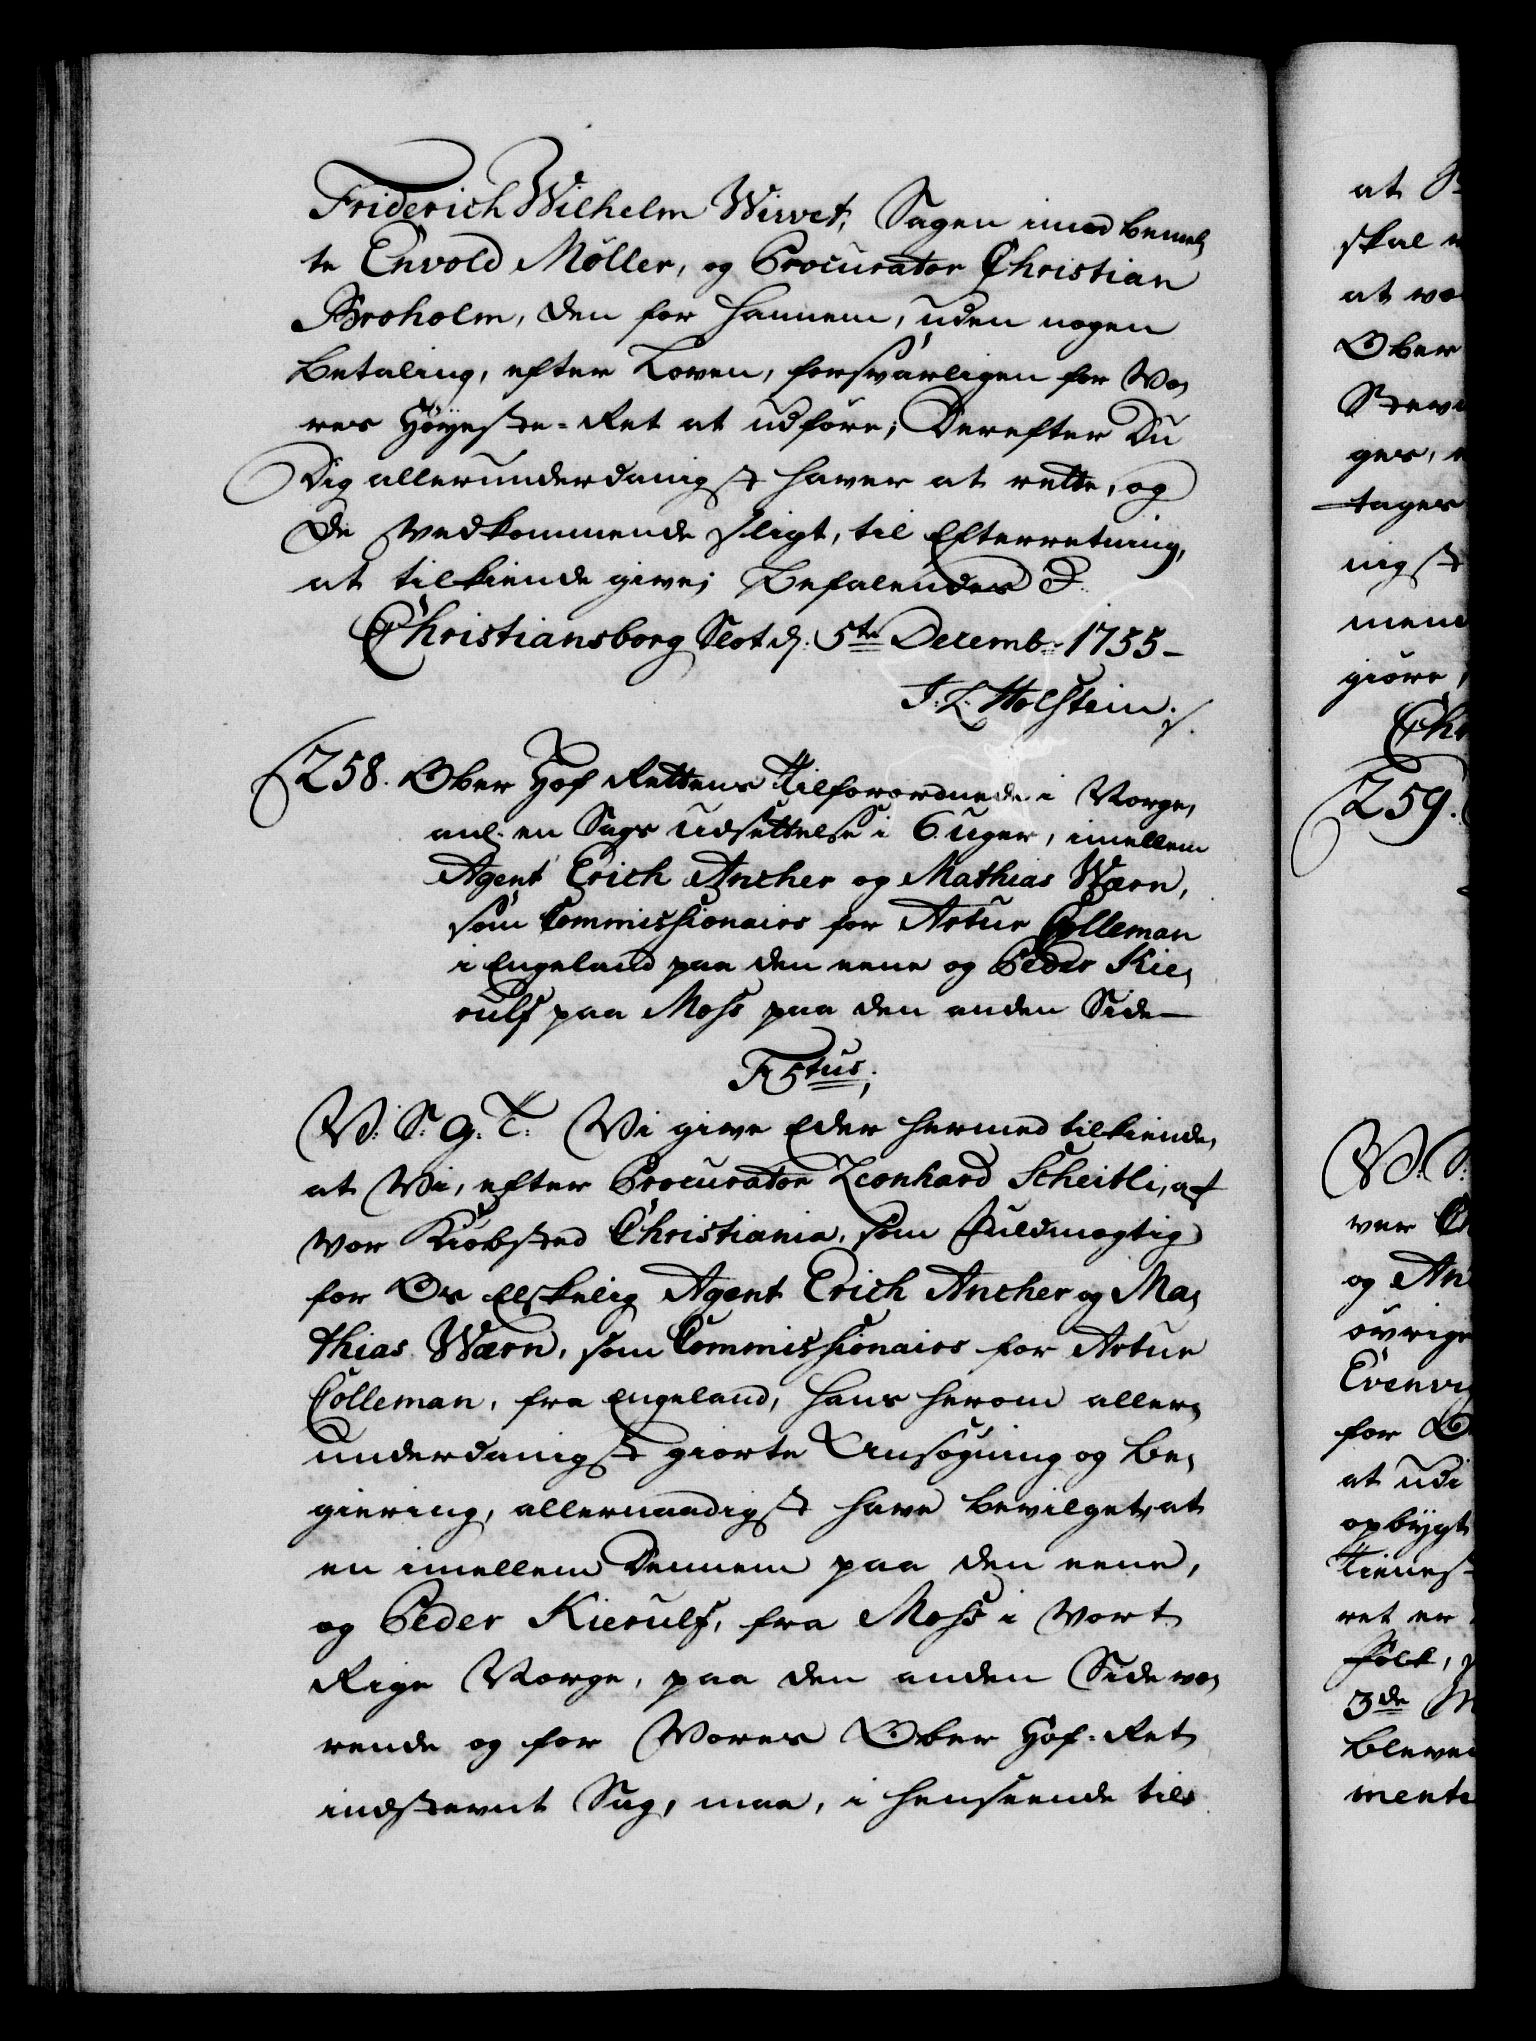 Friderich Wilhelm Wivet, Sagen imod bemel¬
te Envold Møller, og Procurator Christian
Broholm, den for hannem, uden nogen
betaling, efter Loven, forsvarligen for Vo¬
res Høyeste-Ret at udføre; Derefter Du
Dig allerunderdanigst haver at rette, og
de Vedkommende sligt, til Efterretning,
at tilkiende give; Befalendes
Christiansborg Slot d. 5te Decemb: 1755
J. L. Holstein ./.
258. Ober Hof Rettens Tilforordnede i Norge,
anl. en Sags Udsettelse i 6 uger, imellem
Agent Erich Ancher og Mathias Wærn,
som Commissionairs for Artur Colleman
i Engeland paa den eene og Peder Kie¬
rulf paa Moss paa den anden Side
F5tus;
V. S. G. T. Vi give Eder hermed tilkiende,
at Vi, efter Procurator Leonhard Scheitli, af
vor Kiøbsted Christiania, som Fuldmægtig
for Os Elskelig Agent Erich Ancher og Ma¬
thias Wærn, som Commissionairs for Artur
Colleman, fra Engeland, hans herom aller¬
underdanigst giorte Ansøgning og Be¬
giering, allernaadigst have bevilget, at
en imellem Dennem paa den eene,
og Peder Kierulf, fra Moss i Vort
Rige Norge, paa den anden Side væ¬
rende og for Vores Ober Hof-Ret
indstevnt Sag, maa, i henseende til
at
skal
at
Ober
ger,
tager
nigst
mend
giøre
259.
V. S.
ver
og An
øvrige
for
at udi
opbygt
Tienest
ret er
folk,
3de
bleven
mente